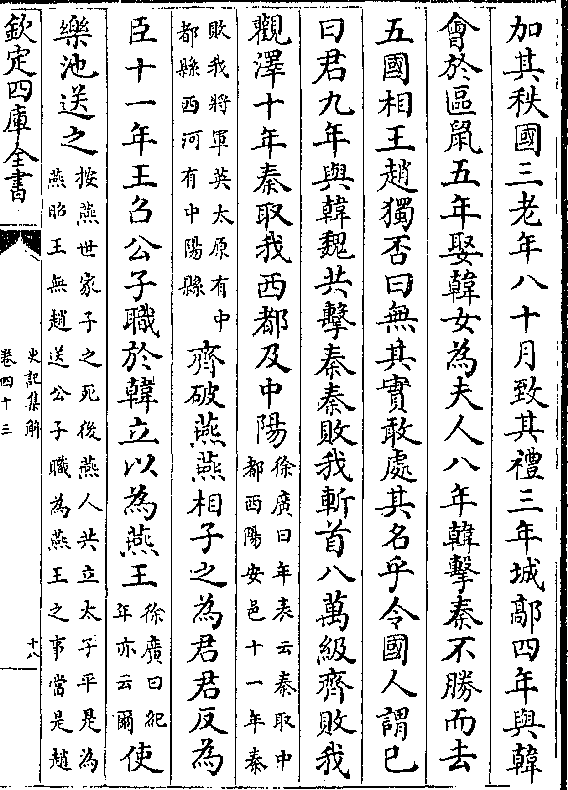 加其秩國三老年八十月致其禮三年城鄗四年與韓
會於區鼠五年娶韓女為夫人八年韓擊秦不勝而去
五國相王趙獨否曰無其實敢處其名乎令國人謂已
曰君九年與韓魏共擊秦秦敗我斬首八萬級齊敗我
觀澤十年秦取我西都及中陽
徐廣曰年表云秦取中
都西陽安邑十一年秦
敗我將軍英太原有中
都縣西河有中陽縣
齊破燕燕相子之為君君反為
臣十一年王召公子職於韓立以為燕王
徐廣曰紀
年亦云爾
使
樂池送之
按燕世家子之死後燕人共立太子平是為
燕昭王無趙送公子職為燕王之事當是趙
欽定四庫全書
史記集解
卷四十三
十八